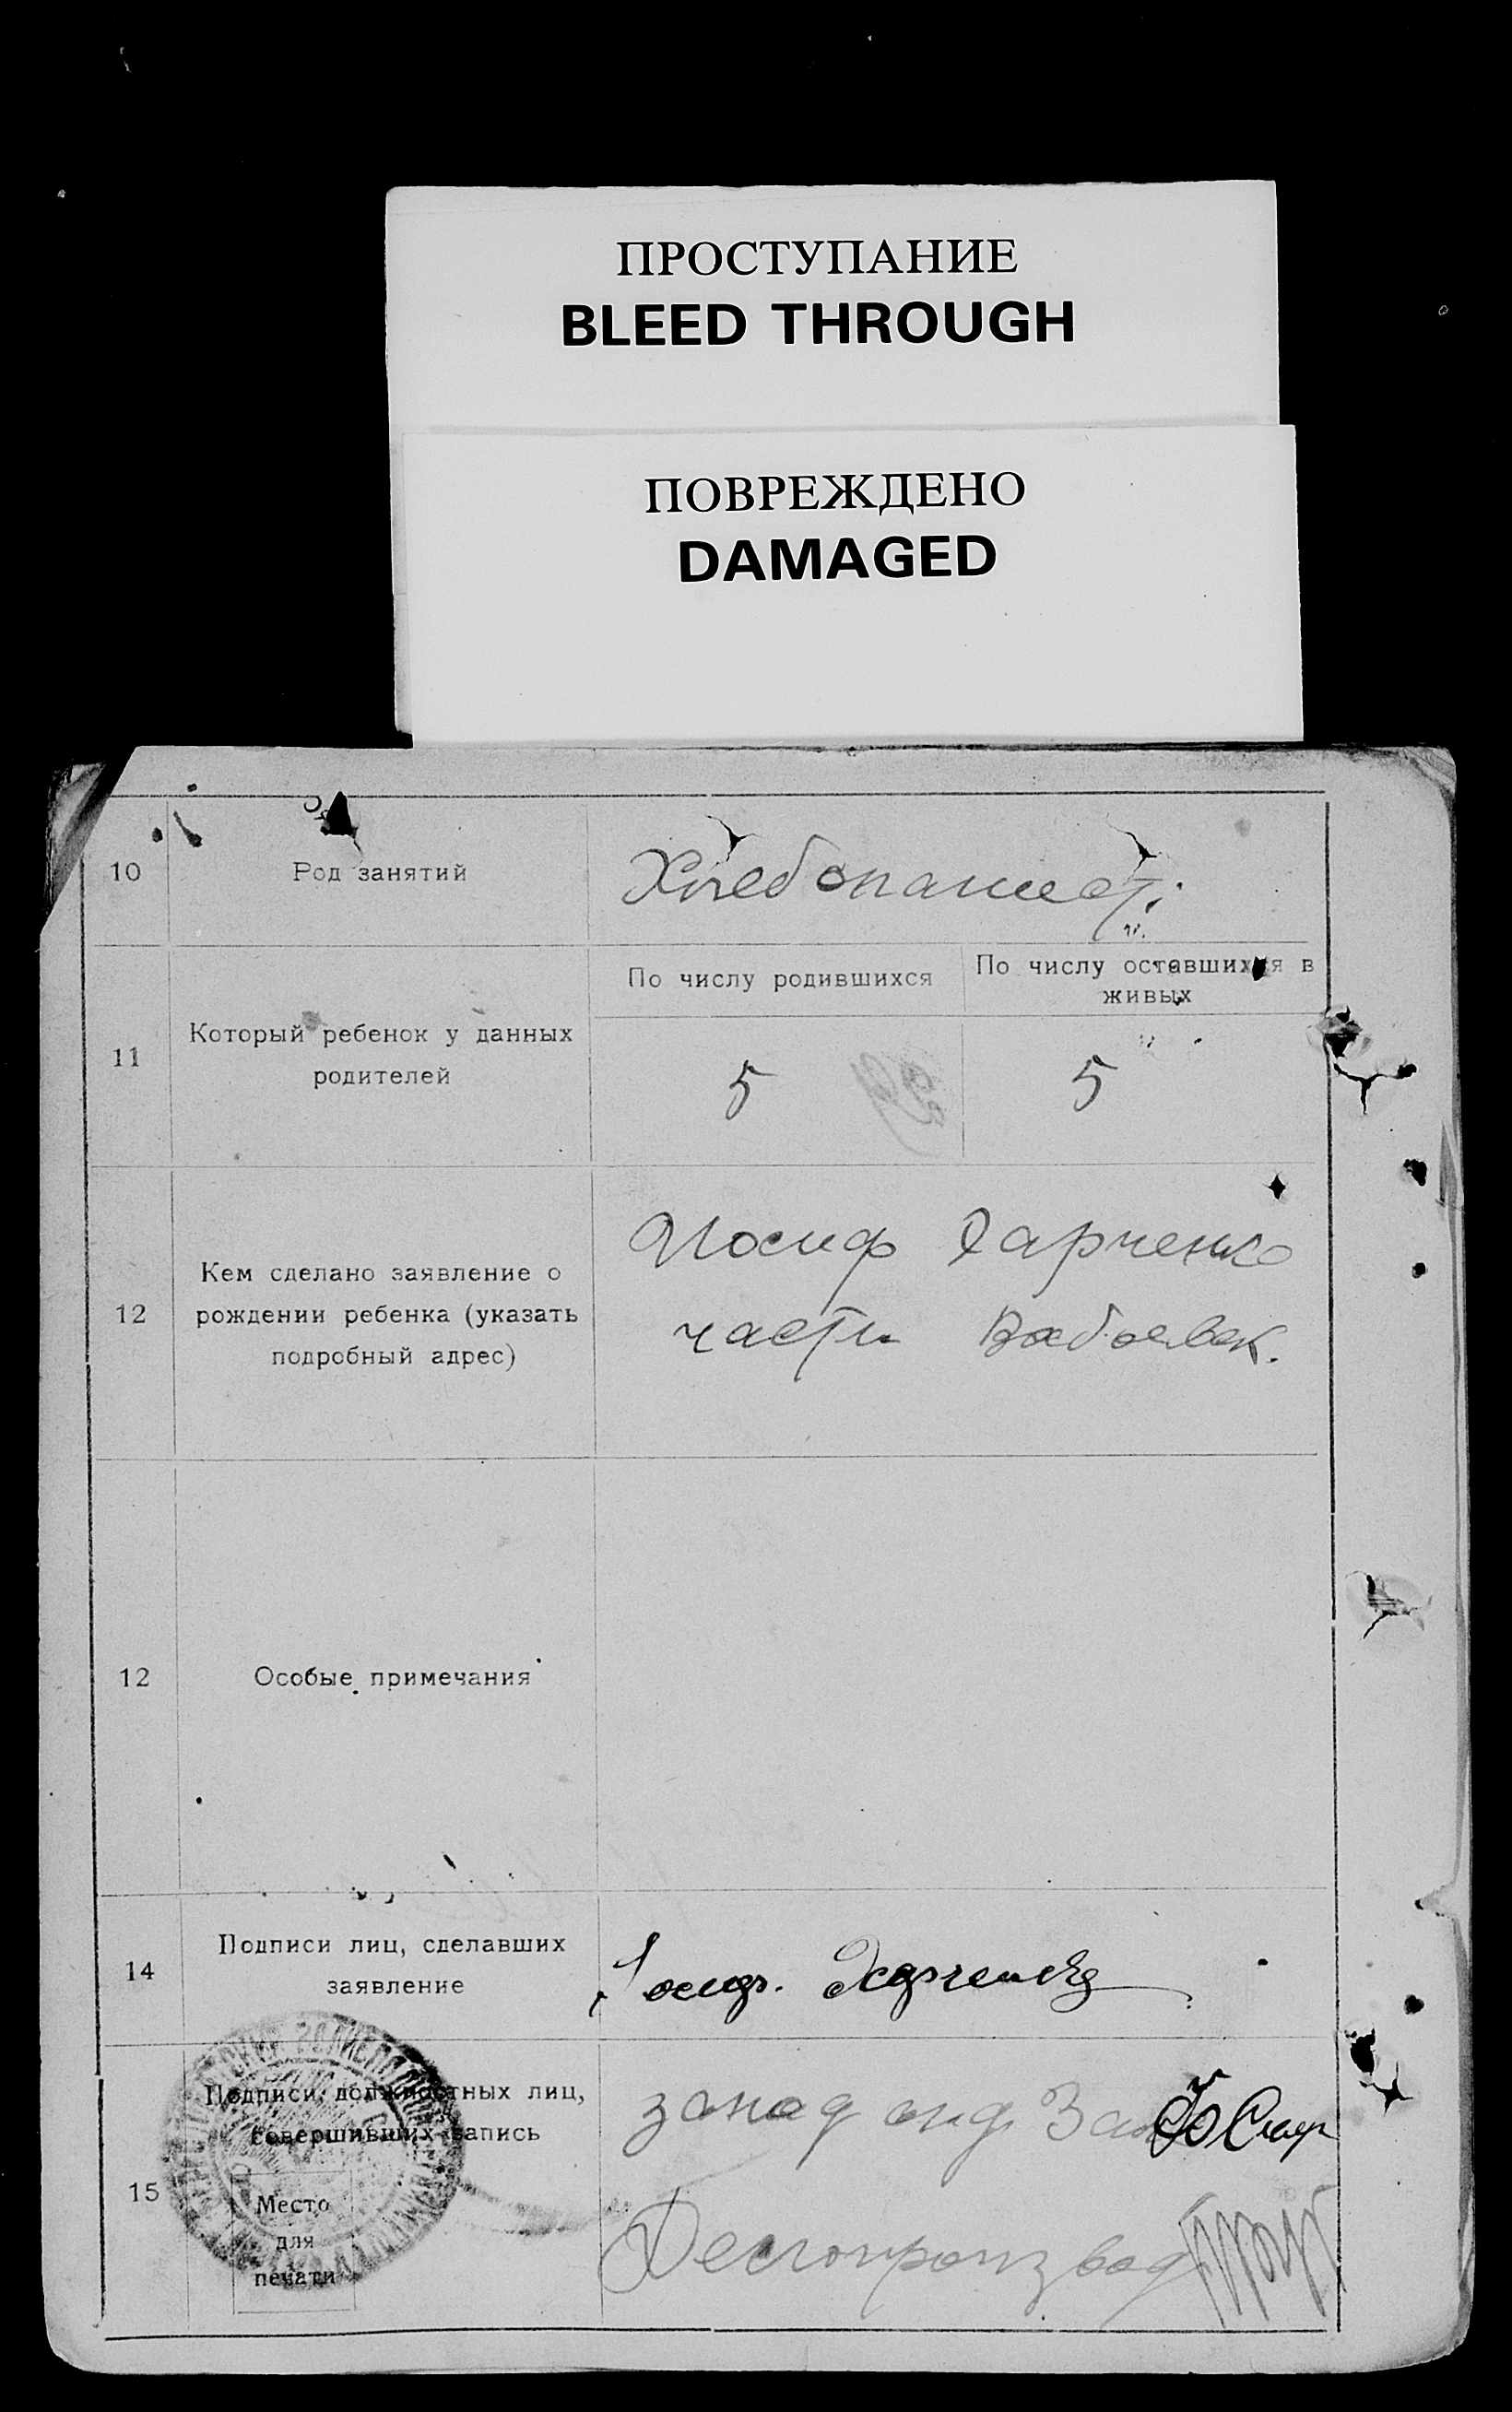 ПРОСТУПАНИЕ
BLEED THROUGH
ПОВРЕЖДЕНО
DAMAGED
10
Род занятий
Хлебопашест.
11
Который ребенок у данных
родителей
По числу родившихся
По числу оставшихся в
живых
5
5
12
Кем сделано заявление о
рождении ребенка (указать
подробный адрес)
Иосиф Харченко
части
12
Особые примечания
14
Подписи лиц, сделавших
заявление
Иосиф. Харченко
15
Подписи должностных лиц,
совершивших запись
Место
для
печати
Делопроизвод